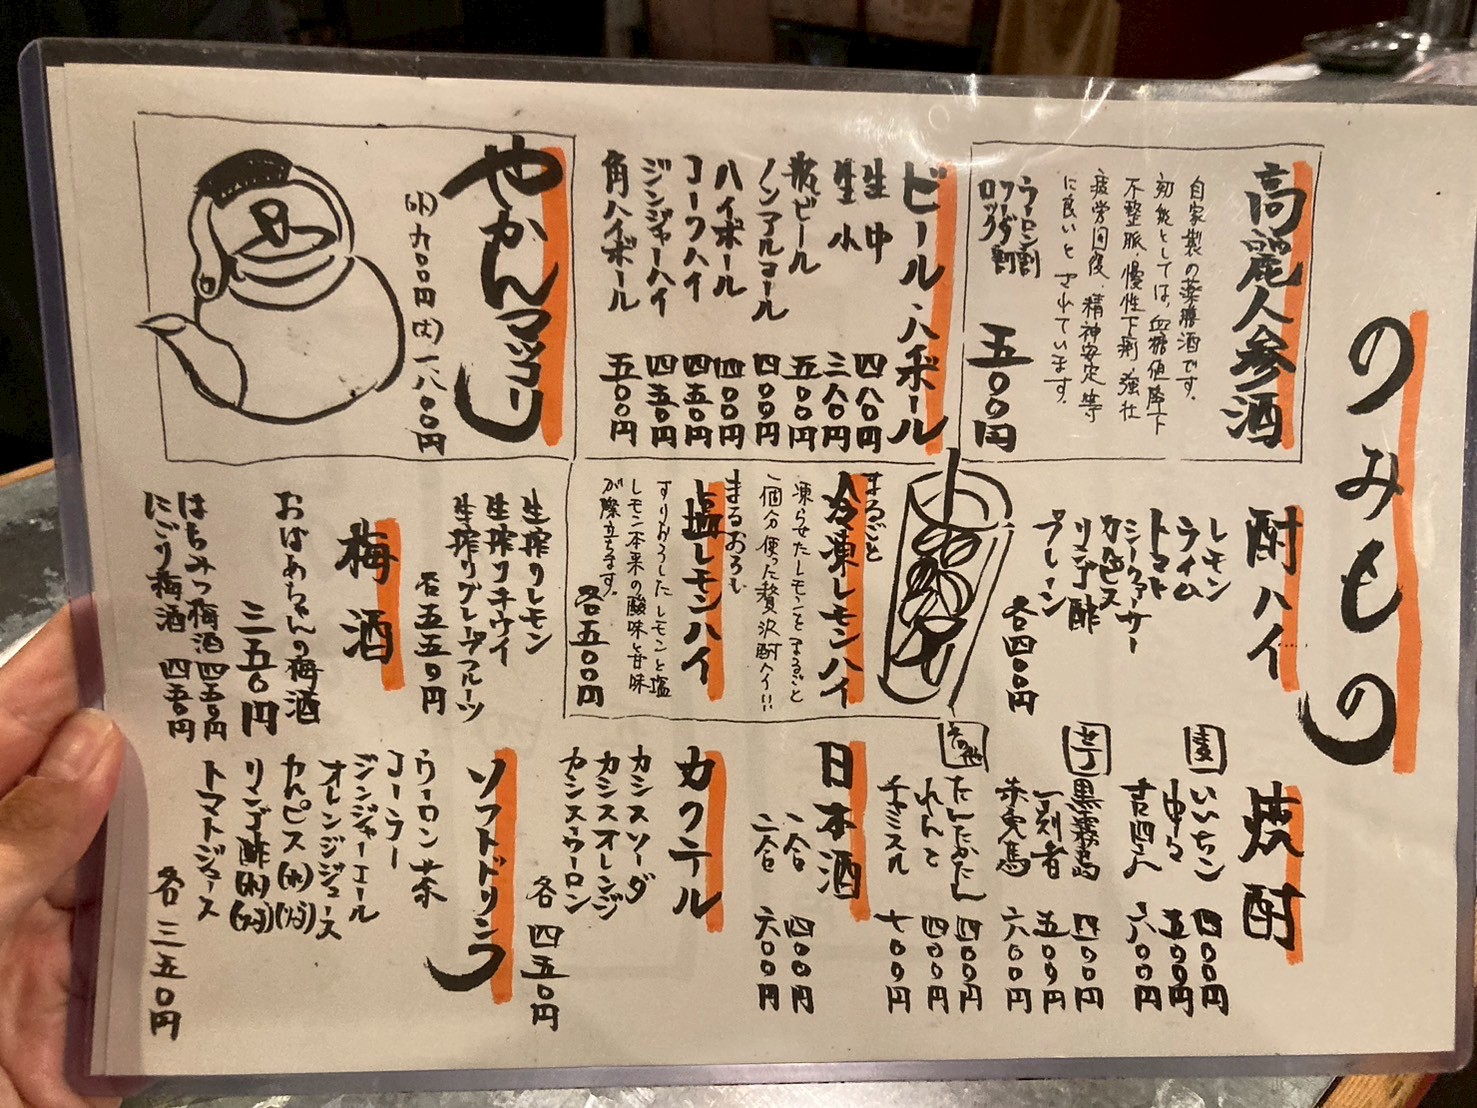 のみもの
高麗人参酒
自家製の薬膳酒です。
効能としては、血糖値降下
不整脈、慢性下痢、強壮
疲労回復、精神安定等
に良いとされています。
ウーロン割
ソーダ割
ロック
五〇〇円
ビール・ハイボール
生中 四八〇円
生小 三八〇円
瓶ビール 五〇〇円
ノンアルコール 四〇〇円
ハイボール 四〇〇円
コークハイ 四五〇円
ジンジャーハイ 四五〇円
角ハイボール 五〇〇円
やかんマッコリ
(小)九〇〇円 (大)一八〇〇円
酎ハイ
レモン
ライム
トマト
シークァーサー
カルピス
リンゴ酢
プレーン
各四〇〇円
まるごと
冷凍レモンハイ
凍らせたレモンをまるごと
一個分使った贅沢酎ハイ!!
まるおろし
塩レモンハイ
すりおろしたレモンと塩
レモン本来の酸味と甘味
が際立ちます。
各五〇〇円
生搾りレモン
生搾りキウイ
生搾りグレープフルーツ
各五五〇円
梅酒
おばあちゃんの梅酒
三五〇円
はちみつ梅酒 四五〇円
にごり梅酒 四五〇円
焼酎
麦
いいちこ 四〇〇円
中々 五〇〇円
吉四六 六〇〇円
芋
黒霧島 四〇〇円
一刻者 五〇〇円
赤兎馬 六〇〇円
その他
たんたかたん 四〇〇円
れんと 四〇〇円
チャミスル 七〇〇円
日本酒
一合 四〇〇円
二合 六〇〇円
カクテル
カシスソーダ
カシスオレンジ
カシスウーロン
各四五〇円
ソフトドリンク
ウーロン茶
コーラ
ジンジャーエール
オレンジジュース
カルピス(水)(ソーダ)
リンゴ酢(水)(ソーダ)
トマトジュース
各三五〇円